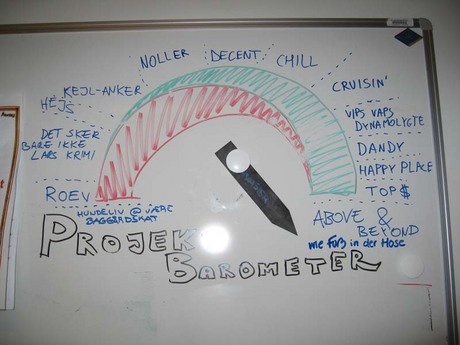 NOLLER
DECENT
CHILL
KEJL-ANKER
CRUISIN'
HEJS
VIPS VAPS
DYNAMOLYGTE
DET SKER
BARE IKKE
LARS KRIMI
DANDY
HAPPY PLACE
ROEV
TOP$
HUNDELIV @ VÆRE
BAGGÅRDSKAT
ABOVE &
BEYOND
me Fuß in der Hose
PROJEKT
BAROMETER